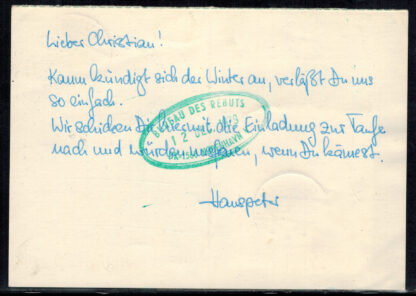 Lieber Christian!
Kaum kündigt sich der Winter an, verläßt Du uns
so einfach.
Wir schicken Dir hiermit die Einladung zur Taufe
nach und würden uns freuen, wenn Du kämest.
Hanspeter
BUREAU DES REBUTS
12 DEC.